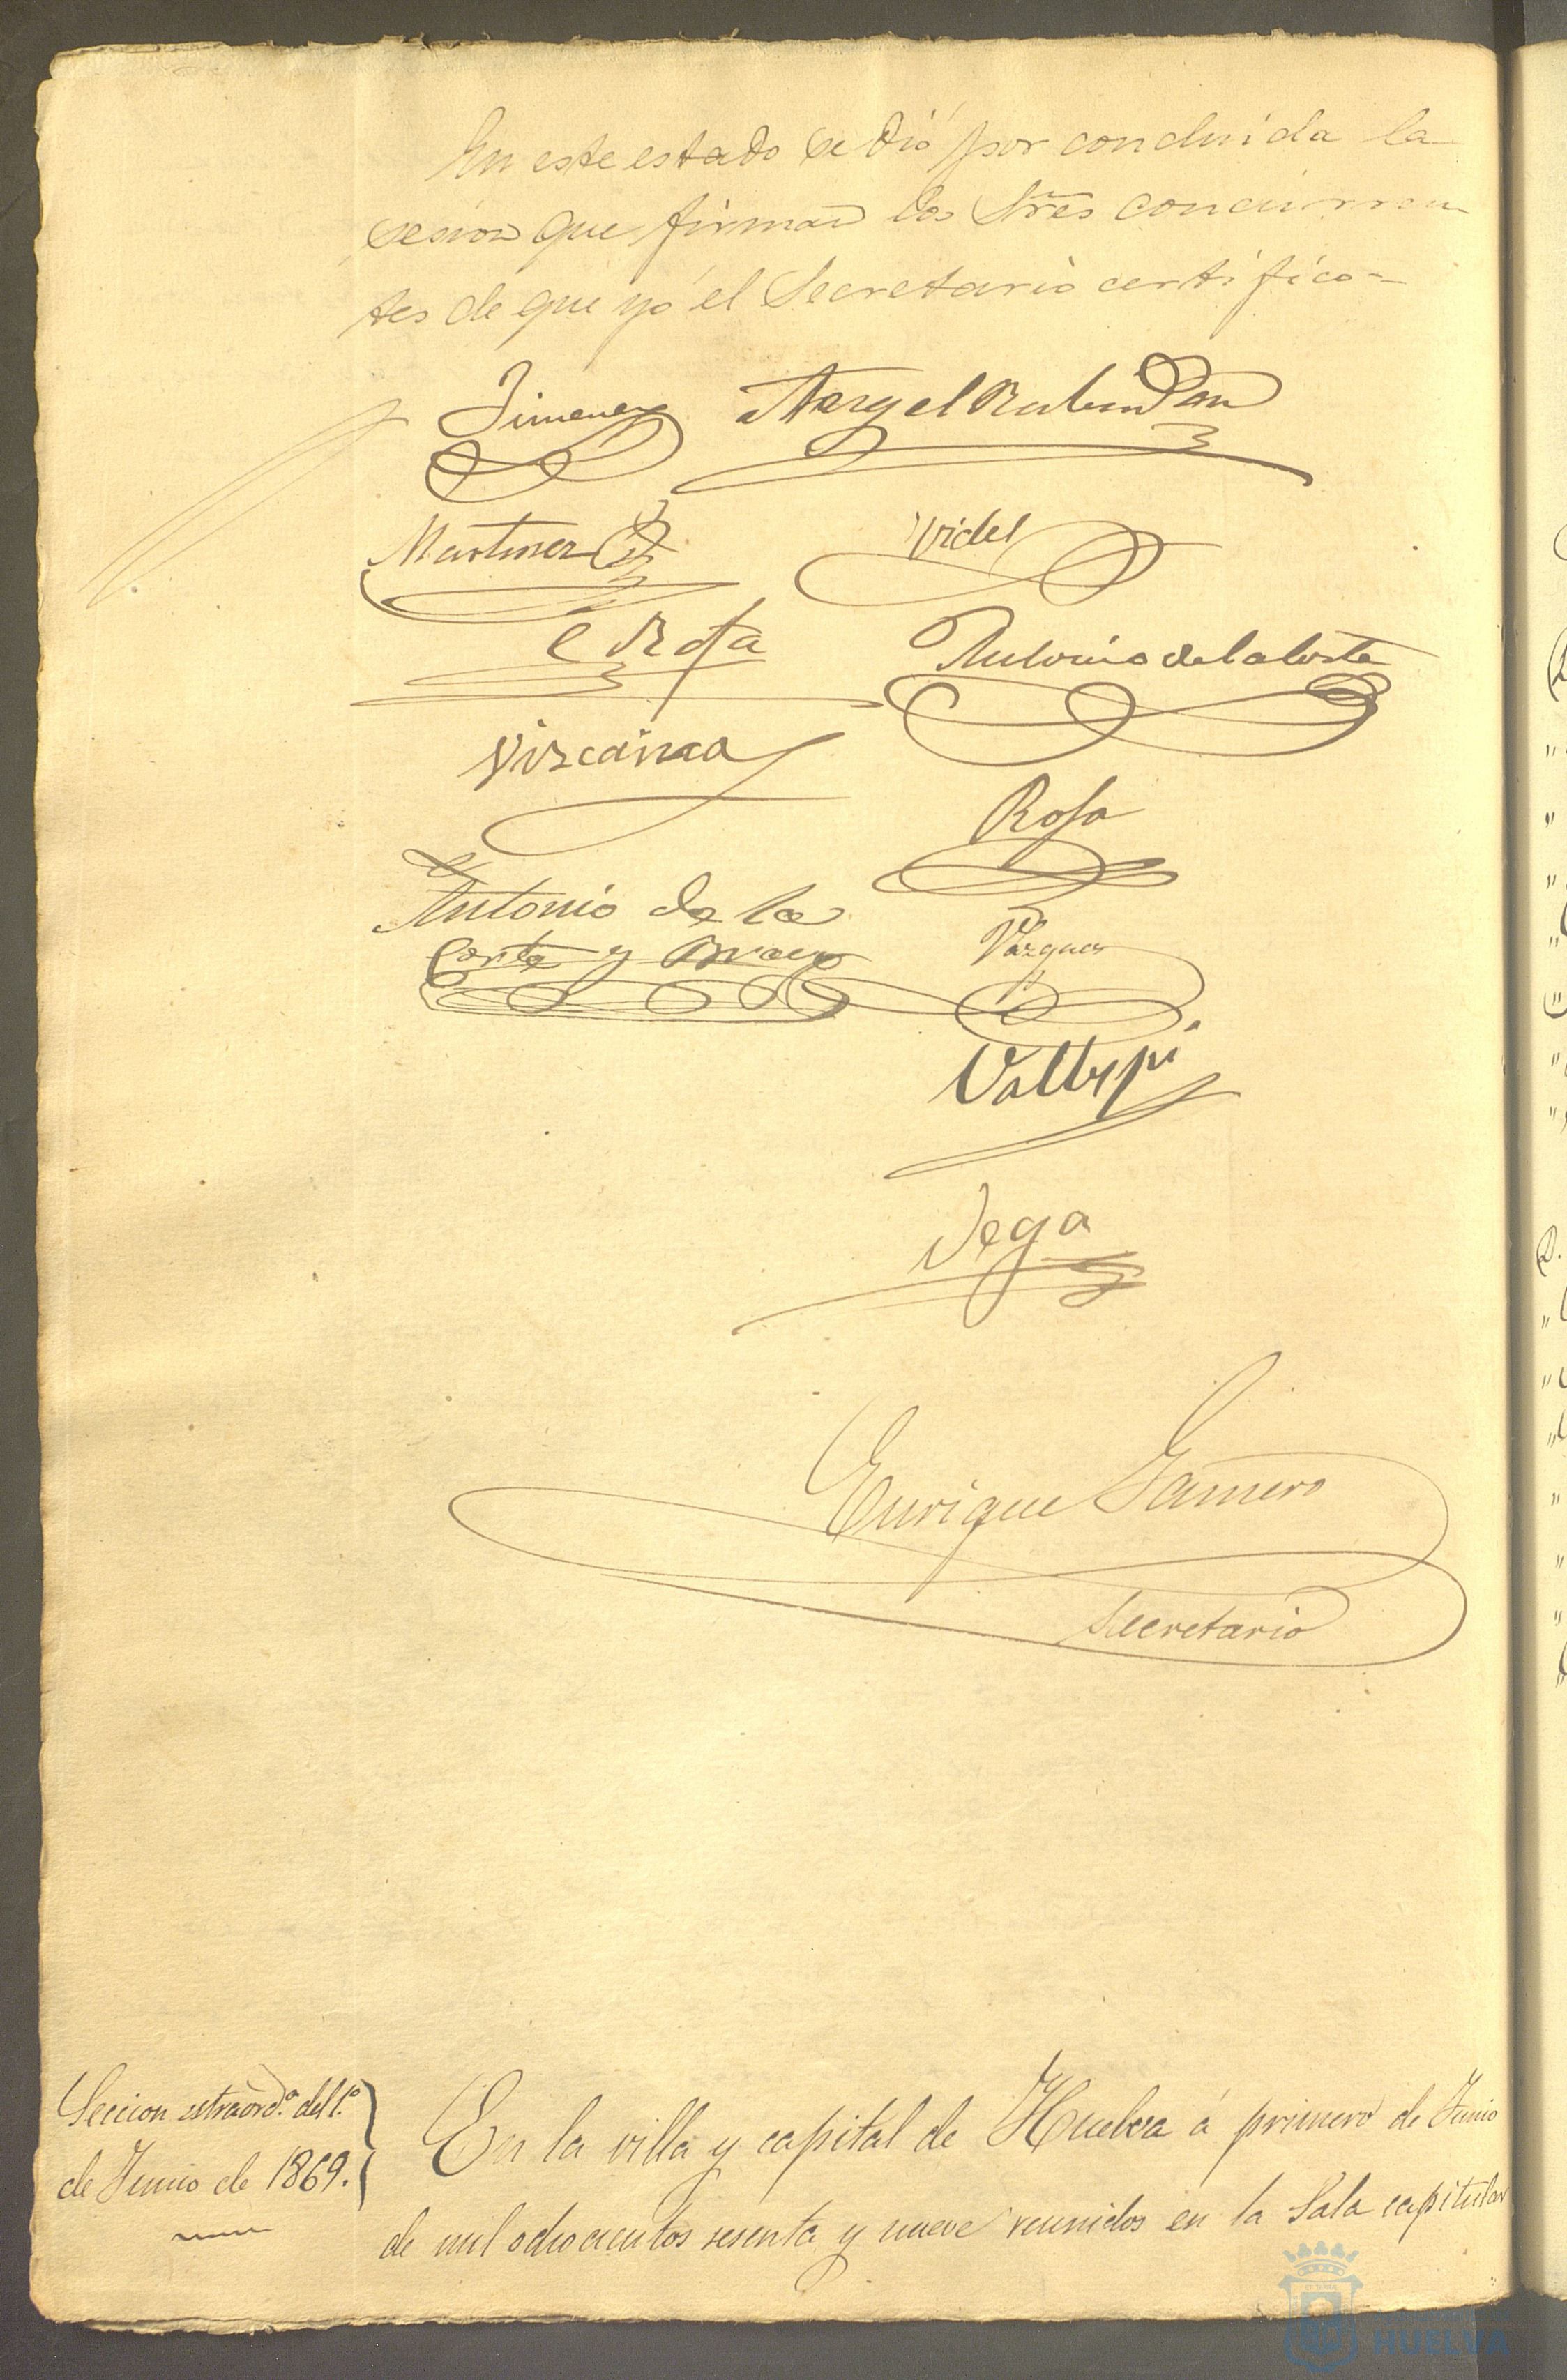 En este estado se dió por concluida la
sesion que firman los Sres concurren
tes de que yo el Secretario certifico=
Jimenez
Martinez
Vidal
C Rota
Antonio de la Corte
Vizcaino
Rosa
Antonio de la
Corte y Bravo
Vazquez
Vega
Enrique Gamero
Secretario
Seccion estraord.ª del 1.º
de Junio de 1869.
En la villa y capital de Huelva á primero de Junio
de mil ochocientos sesenta y nueve reunidos en la Sala capitular
HUELVA